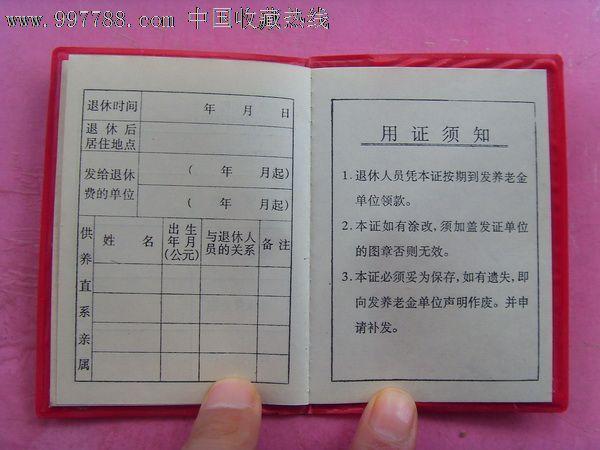 www.997788.com 中国收藏热线
退休时间 年 月 日
退休后
居住地点
发给退休
费的单位
( 年 月起)
( 年 月起)
供养直系亲属
姓 名
出生
年月
(公元)
与退休人
员的关系
备注
用证须知
1. 退休人员凭本证按期到发养老金
单位领款。
2. 本证如有涂改,须加盖发证单位
的图章否则无效。
3. 本证必须妥为保存,如有遗失,即
向发养老金单位声明作废。并申
请补发。